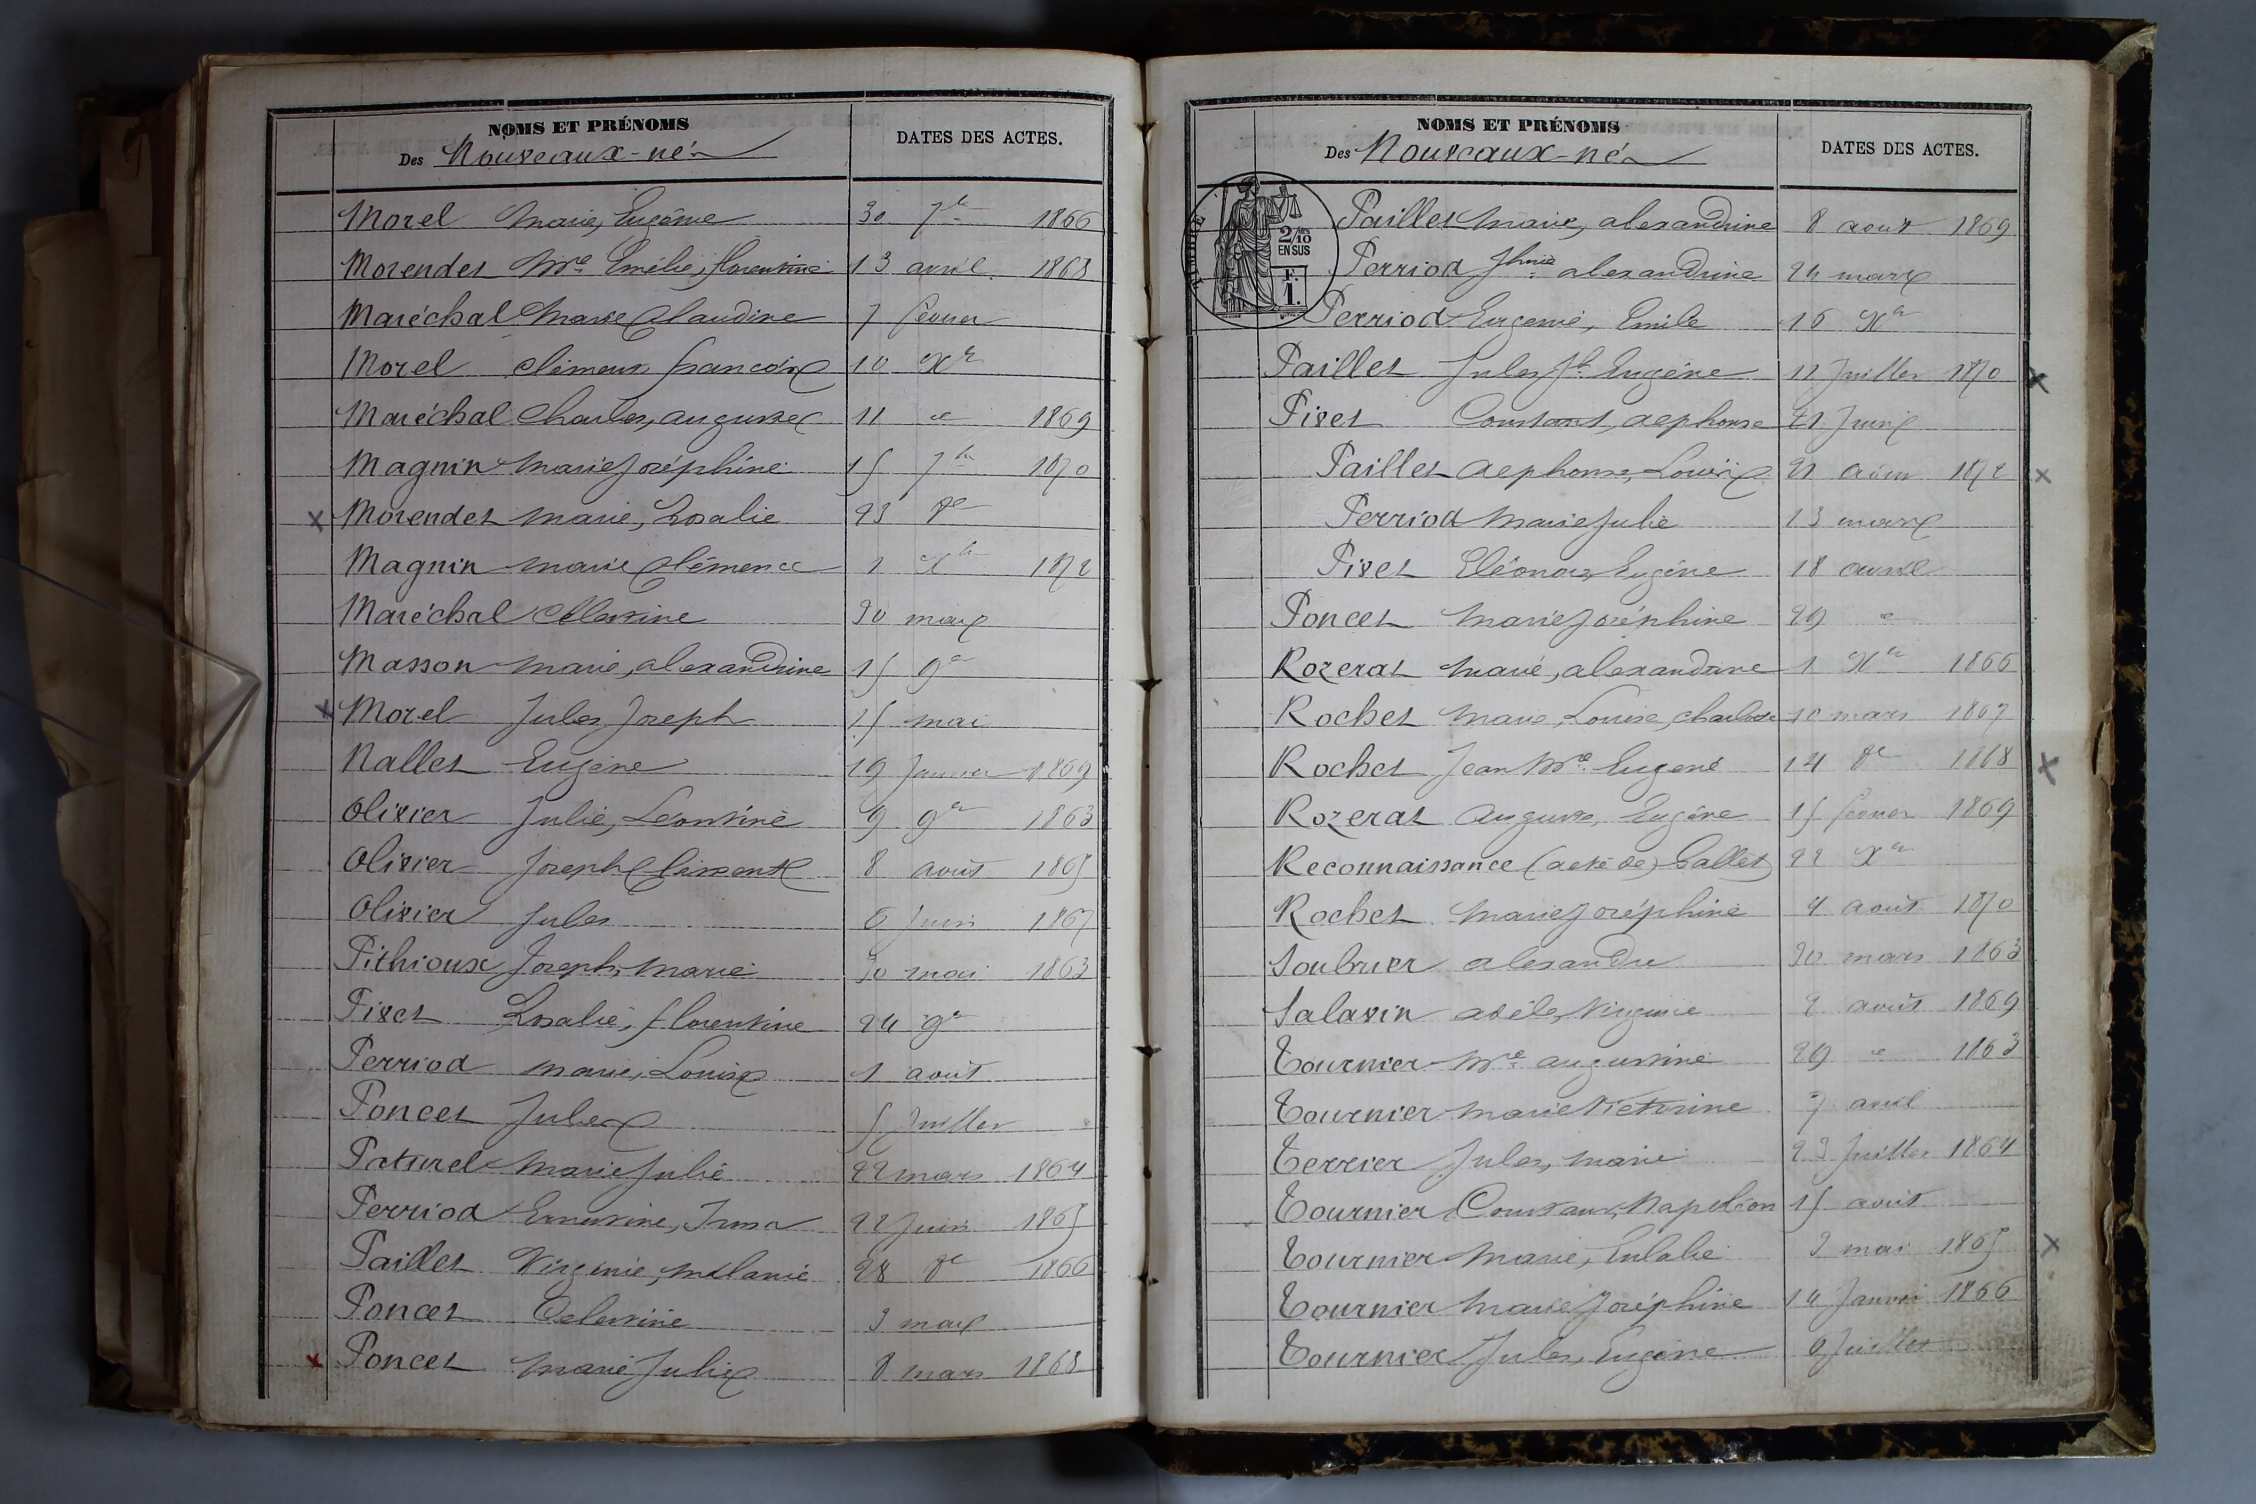 NOMS ET PRÉNOMS
Des Nouveaux-nés
DATES DES ACTES.
Morel Marie, Eugénie 30 7bre 1866
Morendet Mie Emélie, florentine 13 avril 1868
Maréchal Marie Claudine 7 février
Morel Clément françois 10 Xbre
Maréchal Charles, auguste 11 d° 1869
Magnin Marie Joséphine 15 7bre 1870
x Morendet Marie, Rosalie 23 8e
Magnin Marie Clémence 1 Xbre 1872
Maréchal Célestine 30 mars
Masson Marie, alexandrine 15 9e
x Morel Jules Joseph 25 mai
Nallet Eugène 19 Janvier 1869
Olivier Julie, Léontine 9 9e 1863
Olivier Joseph 8 août 1865
Olivier Jules 6 Juin 1867
Pithioux Joseph, Marie 30 mai 1863
Pivet Rosalie, florentine 24 9e
Perriod Marie, Louise 1 août
Poncet Jules 5 Juillet
Paturel Marie Julie 22 mars 1864
Perriod Ernestine, Irma 22 Juin 1865
Paillet Virginie, Mélanie 28 8e 1866
Poncet Célestine 3 mars
x Poncet Marie Julie 8 mars 1868
NOMS ET PRÉNOMS
Des Nouveaux-nés
DATES DES ACTES.
TIMBRE
2/10
EN SUS
F.
1.
Paillet Marie, alexandrine 8 aout 1869
Perriod Jhine alexandrine 24 mars
Perriod Eugénie, Emile 16 Xbre
Paillet Jules Jh Eugène 11 Juillet 1870 x
Pivet Constant, alphonse 21 Juin
Paillet Alphonse, Louis 21 août 1872 x
Perriod Marie Julie 13 mars
Pivet Eléonore Eugène 18 avril
Poncet Marie Joséphine 29 d°
Rozerat Marie, alexandrine 1 Xbre 1866
Rochet Marie Louise, Charlotte 10 mars 1867
Rochet Jean Mie Eugène 14 8e 1868 x
Rozerat Auguste, Eugène 15 février 1869
Reconnaissance (acte de) Pallet 22 Xbre
Rochet Marie Joséphine 4 août 1870
Soubrier alexandre 30 mars 1863
Salavin adèle, Virginie 2 août 1869
Tournier Mie augustine 29 d° 1863
Tournier Marie Victorine 7 avril
Terrier Jules, Marie 23 Juillet 1864
Tournier Constant, Napoléon 15 août
Tournier Marie, Eulalie 3 mai 1865 x
Tournier Marie Joséphine 14 Janvier 1866
Tournier Jules, Eugène 9 Juillet